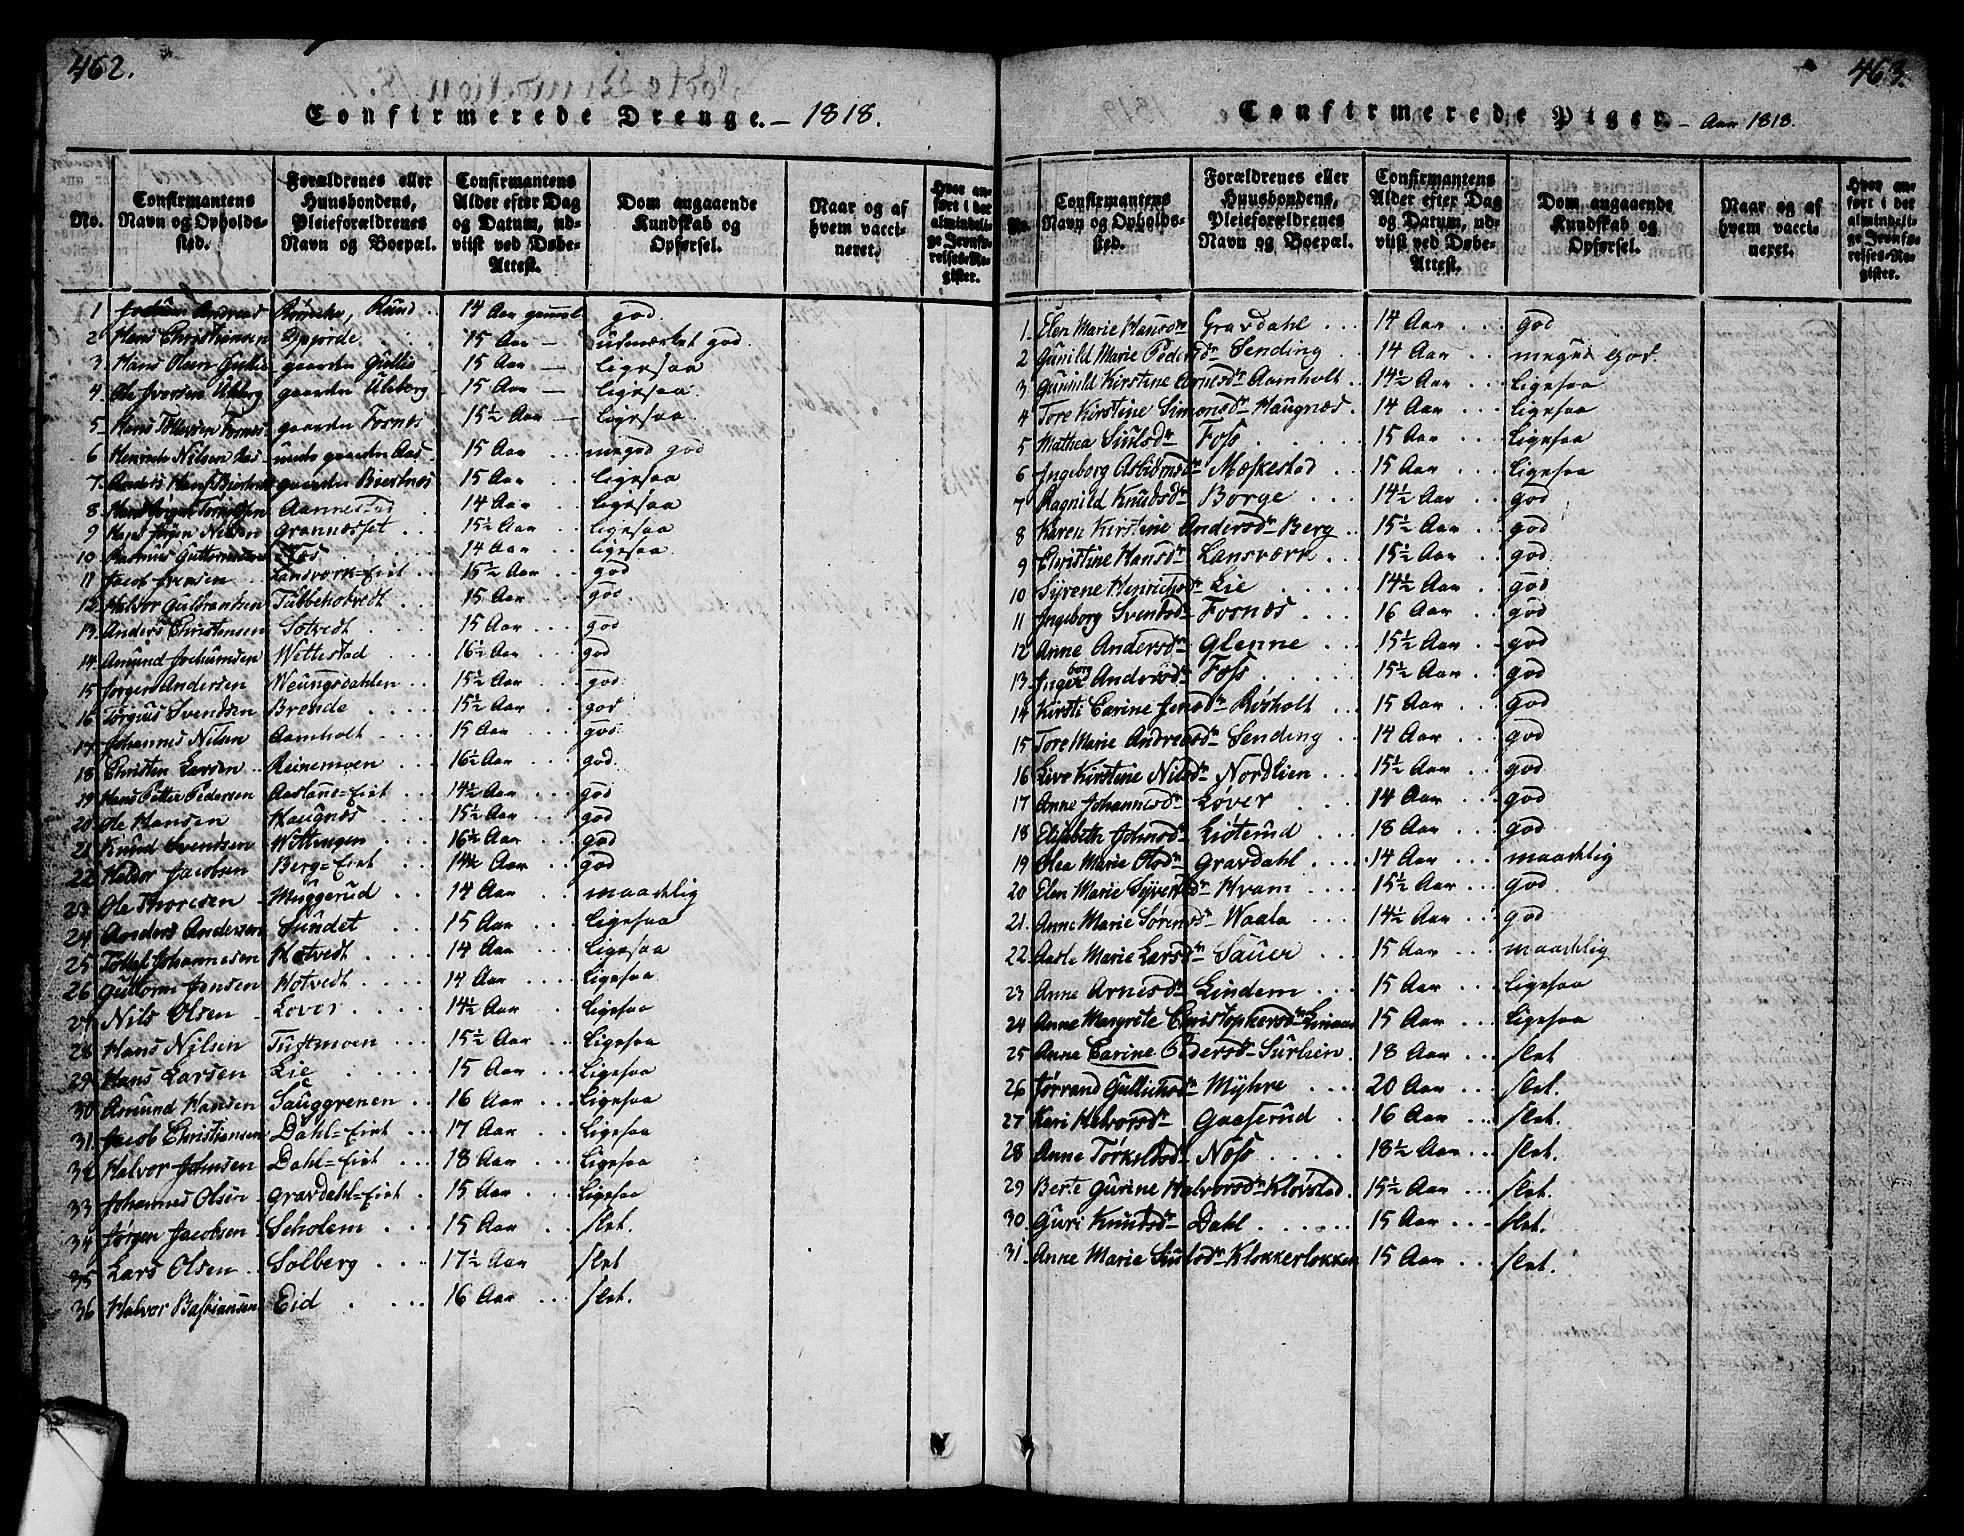 462.
Confirmerede Drenge. – 1818.
No.
Confirmantens Navn og Opholdssted.
Forældrenes eller Huusbondens, Pleieforældrenes Navn og Boepæl.
Confirmantens Alder efter Dag og Datum, udviist ved Døbe-Attest.
Dom angaaende Kundskab og Opførsel.
Naar og af hvem vaccineret.
Hvor anført i det almindelige Jevnførelses-Register.
1 Jochum Andreas Rund . 14 Aar gammel god.
2 Hans Christiansen Opjorde . . 15 Aar — udmærket god.
3. Hans Olsen Gullie gaarden Gullie 15 Aar — ligesaa
4. Ole Iversen Ulberg gaarden Uleberg 15 Aar — ligesaa.
5 Hans Tollefsen Fosnes gaarden Fosnes 15½ Aar — ligesaa.
6 Henrich Nilsen Aas – unde gaarden Aas . 15 Aar . . meged god
7. Anders Hans. gaarden Bjertnes 15 Aar . . ligesaa
8 Hans Jørgen Aannestad . 14 Aar . . . ligesaa
9 Hans Jørgen Nilsen Grannæsset . . 15½ Aar . . . ligesaa
10 Rasmus Guttormsen Foss . . . 14 Aar . . . ligesaa.
11 Jacob Iversen . . Lansværk-Eiet . . 15½ Aar . . . god
12 Halvor Guldbrandsen Tubbehotvedt . 15 Aar . . god
13. Anders Christensen Sotvedt . . . 15 Aar . . . god
14 Amund Jochumsen Wettestad . . . 16½ Aar . . . god
15 Jørgen Andersen Weungsdahlen . . 15½ Aar . . . god.
16 Torgius Svendsen Brende . . . . 15½ Aar . . . god
17 Johannes Nilsen Aamholt . . . . 15 Aar . . . god.
18 Christen Larsen . . Reinemoen . . 16½ Aar . . . god.
19 Hans Petter Pedersen Aasland-Eiet . . 14½ Aar . . . god
20 Ole Hansen Haugnæs . . . 15½ Aar . . . god
21 Knud Svendsen Wittingen . . . 16½ Aar . . . god
22 Halvor Jacobsen Berg-Eiet . . . 14½ Aar . . . god
23 Ole Thoresen – Muggerud . . 14 Aar . . maadelig
24 Anders Andersen Sundet . . 15 Aar . . . ligesaa
25 Tollef Johannesen Hotvedt . . . . 14 Aar . . . ligesaa
26 Guttorm Jensen Hotvedt . . . . 14 Aar . . . ligesaa
27 Nils Olsen – Lover . . . . 14½ Aar . . . ligesaa
28 Hans Nilsen Tuftmoen . . . 15½ Aar . . . ligesaa
29 Hans Larsen Lie . . . . . 15 Aar . . . ligesaa
30 Amund Hansen Sauggrenen . . . 16 Aar . . . ligesaa
31. Jacob Christiansen Dahl-Eiet . . . 17 Aar . . . ligesaa
32 Halvor Johnsen Dahl-Eiet . . . 18 Aar . . . ligesaa
33 Johannes Olsen – Gravdahl-Eiet . 15 Aar . . . ligesaa
34 Jørgen Jacobsen Scholem . . . 15 Aar . . . slet.
35 Lars Olsen . . Solberg . . . . 17½ Aar . . . slet
36 Halvor Bastiansen Eid . . . . 16 Aar . . . slet.
463.
Confirmerede Piger – Aar 1818.
No.
Confirmantens Navn og Opholdssted.
Forældrenes eller Huusbondens, Pleieforældrenes Navn og Boepæl.
Confirmantens Alder efter Dag og Datum, udviist ved Døbe-Attest.
Dom angaaende Kundskab og Opførsel.
Naar og af hvem vaccineret.
Hvor anført i det almindelige Jevnførelses-Register.
1. Elen Marie Hansdr Gravdahl . . . 14 Aar . . . god
2 Gunild Marie Pedersdr Sending . 14 Aar . . . meged god.
3 Gunild Kirstine Arnesdr Aamholt . . 14½ Aar . . . ligesaa
4 Tore Kirstine Simonsdr Haugnæs . 14 Aar . . . ligesaa
5 Mathea Siulsdr Foss . . . . . 15 Aar . . . ligesaa
6 Ingeborg Asbiørnsdr Mæskestad . . 15 Aar . . . ligesaa
7 Ragnild Knudsdr Borge . . . 14½ Aar . . . god
8 Karen Kirstine Andersdr Berg . . 15½ Aar . . . god
9 Christine Hansdr Lansværk . . . 15½ Aar . . . god.
10 Syrene Henrichsdr Lie . . . . . 14½ Aar . . . god
11 Ingeborg Svendsdr Fosnæs . . . 16 Aar . . . god
12 Anne Andersdr Glenne . . . 15½ Aar . . . god
13. Ingeborg Andersdr Foss . . . . . 15½ Aar . . . god
14 Kirsti Carine Jensdr Røsholt . . 15 Aar . . . god
15 Tore Marie Andreasdr Sending . . 14 Aar . . . god
16 Live Kirstine Nilsdr Nordlien . . . 15½ Aar . . . god
17 Anne Johannesdr Løver . . . . 14 Aar . . . god
18 Elisabeth Johnsdr Liøterud . . . 18 Aar . . . god
19 Olea Marie Olsdr Gravdahl . . . . 14 Aar . . . maadelig
20 Elen Marie Syversdr Hvam . . . . 15½ Aar . . . god.
21. Anne Marie Sørensdr Waala . . . 14½ Aar . . . god
22 Aasle Marie Larsdr Sauer . . . 15 Aar . . . maadelig
23 Anne Arnesdr Lindem . . . 15 Aar . . . ligesaa
24 Anne Margrete Christophersdr 15 Aar . . . ligesaa
25 Anne Carine Pedersdr Surlien . 18 Aar . . . slet
26 Jørrand Gullichsdr Myhre . . . . 20 Aar . . . slet.
27 Kari Halvorsdr Gaaserud . . . 16 Aar . . . slet.
28 Anne Torkelsdr Noss . . . . . 18½ Aar . . . slet.
29 Berte Gurine Halvorsdr Kløvstad . 15½ Aar . . . slet.
30. Guri Knudsdr Dahl . . . . . . 15 Aar . . . slet.
31. Anne Marie Siulsdr Klokkerløkken 15 Aar . . . slet.